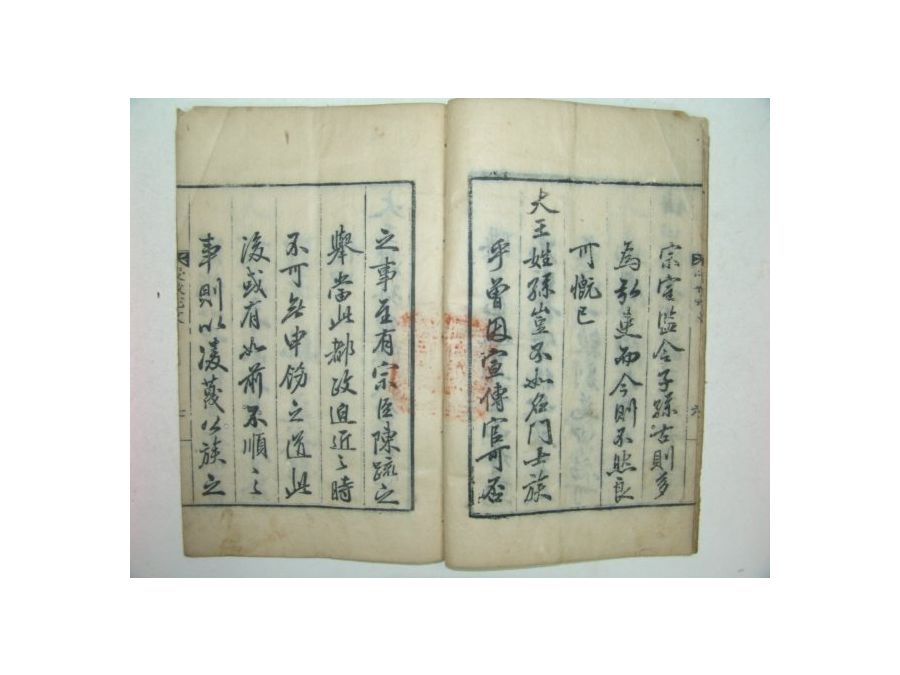 宗室監令子孫古則多
為弘建而今則不然良
可慨已
大王姓孫豈不如名門士族
乎曾因宣傳官可否
之事至有宗臣陳疏之
舉當此都政迫近之時
不可無申飭之道此
後或有如前不順之
事則以凌蔑公族之
六
七